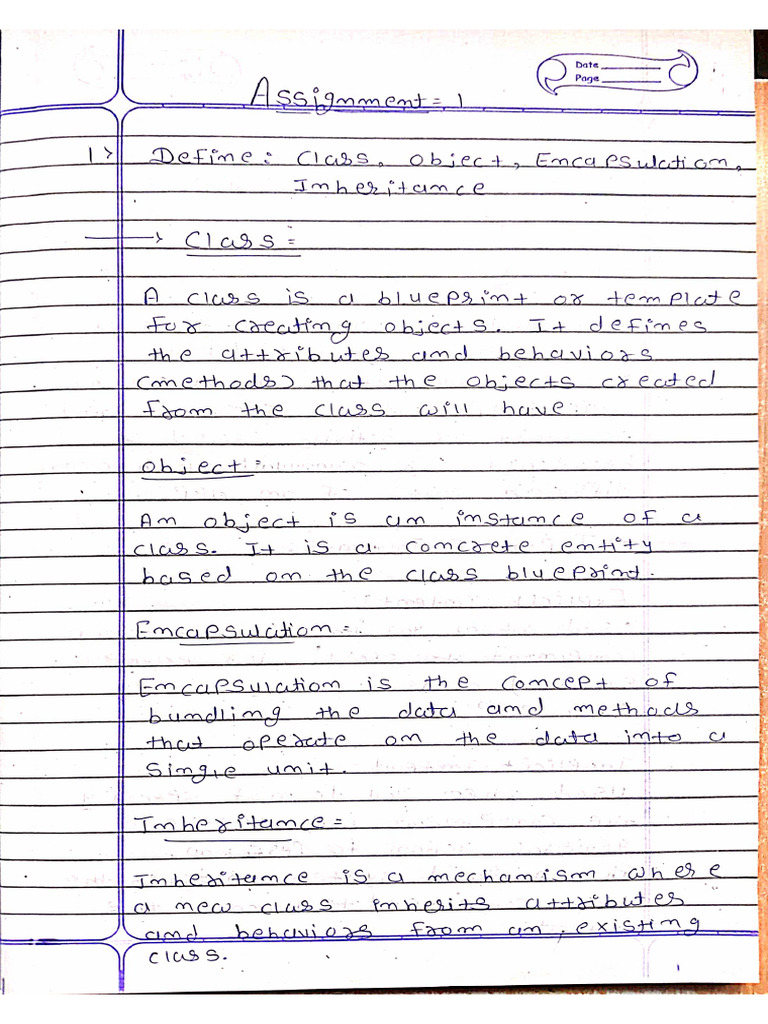 Date
Page
Assignment = 1
1> Define: Class, Object, Encapsulation,
Inheritance
→ Class =
A class is a blueprint or template
for creating objects. It defines
the attributes and behaviors
(methods) that the objects created
from the class will have.
Object :-
An object is an instance of a
class. It is a concrete entity
based on the class blueprint.
Encapsulation =
Encapsulation is the concept of
bundling the data and methods
that operate on the data into a
single unit.
Inheritance =
Inheritance is a mechanism where
a new class inherits attributes
and behaviors from an existing
class.